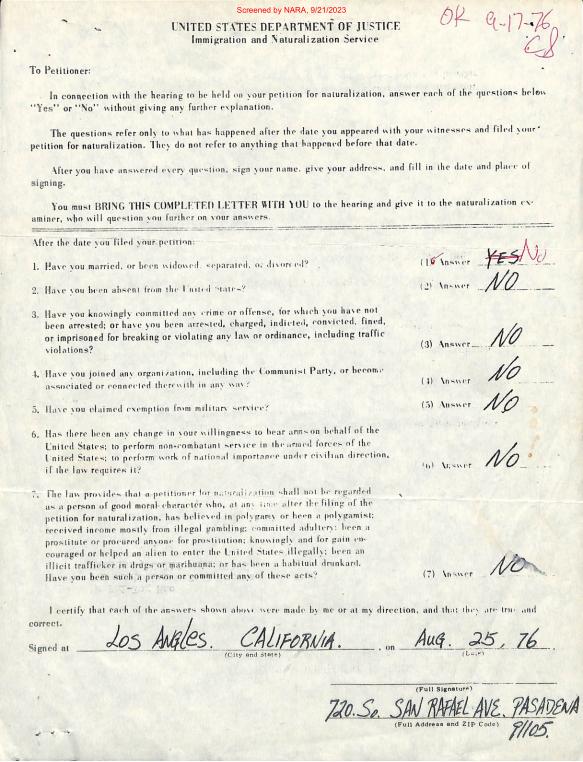 Screened by NARA, 9/21/2023
OK 9-17-76
UNITED STATES DEPARTMENT OF JUSTICE
Immigration and Naturalization Service
To Petitioner:
In connection with the hearing to be held on your petition for naturalization, answer each of the questions below
"Yes" or "No" without giving any further explanation.
The questions refer only to what has happened after the date you appeared with your witnesses and filed your
petition for naturalization. They do not refer to anything that happened before that date.
After you have answered every question, sign your name, give your address, and fill in the date and place of
signing.
You must BRING THIS COMPLETED LETTER WITH YOU to the hearing and give it to the naturalization ex-
aminer, who will question you further on your answers.
After the date you filed your petition:
1. Have you married, or been widowed, separated, or divorced? (1) Answer YES No
2. Have you been absent from the United States? (2) Answer NO
3. Have you knowingly committed any crime or offense, for which you have not
been arrested; or have you been arrested, charged, indicted, convicted, fined,
or imprisoned for breaking or violating any law or ordinance, including traffic
violations? (3) Answer NO
4. Have you joined any organization, including the Communist Party, or become
associated or connected therewith in any way? (4) Answer NO
5. Have you claimed exemption from military service? (5) Answer NO
6. Has there been any change in your willingness to bear arms on behalf of the
United States; to perform non-combatant service in the armed forces of the
United States; to perform work of national importance under civilian direction,
if the law requires it? (6) Answer NO
7. The law provides that a petitioner for naturalization shall not be regarded
as a person of good moral character who, at any time after the filing of the
petition for naturalization, has believed in polygamy or been a polygamist;
received income mostly from illegal gambling; committed adultery; been a
prostitute or procured anyone for prostitution; knowingly and for gain en-
couraged or helped an alien to enter the United States illegally; been an
illicit trafficker in drugs or marihuana; or has been a habitual drunkard.
Have you been such a person or committed any of these acts? (7) Answer NO
I certify that each of the answers shown above were made by me or at my direction, and that they are true and
correct.
Signed at LOS ANGLES. CALIFORNIA. , on AUG. 25, 76
(City and State) (Date)
(Full Signature)
720. So. SAN RAFAEL AVE. PASADENA
(Full Address and ZIP Code) 91105.